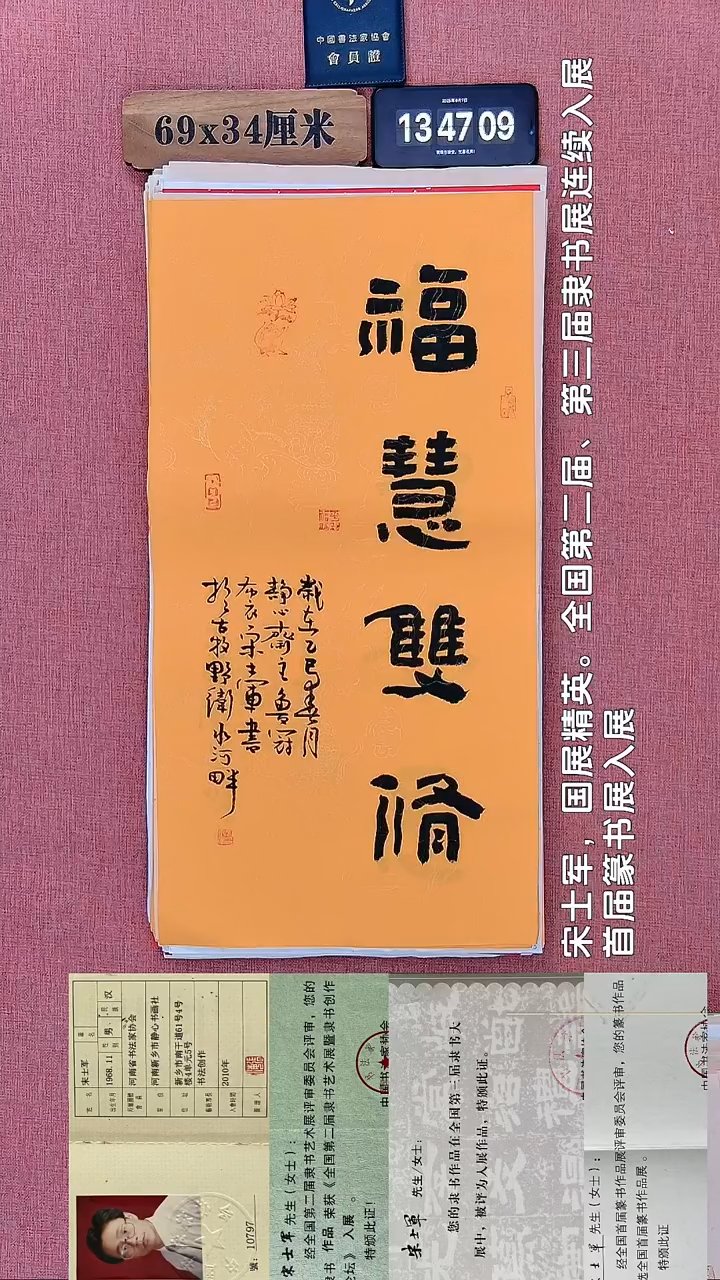 中國書法家協會
會員證
69x34厘米
2025年6月7日
13 47 09
福慧雙脩
歲在乙巳春月
靜心齋主魯閣
布衣宋士軍書
於古牧野衛水河畔
宋士军，国展精英。全国第二届、第三届隶书展连续入展
首届篆书展入展
姓名 宋士军
出生年月 1968.11 性别 男 民族 汉
河南省书法家协会
河南新乡市静心书画社
新乡市南干道61号4号
楼4单元5号
书法创作
入会时间 2010年
號：10797
宋士军 先生（女士）：
经全国第二届隶书艺术展评审委员会评审，您的
隶书 作品 荣获《全国第二届隶书艺术展暨隶书创作
论坛》 入展 。
特颁此证！
宋士軍 先生/女士：
您的隶书作品在全国第三届隶书大
展中，被评为入展作品，特颁此证。
士军 先生（女士）：
经全国首届篆书作品展评审委员会评审，您的篆书作品
全国首届篆书作品展 。
特颁此证